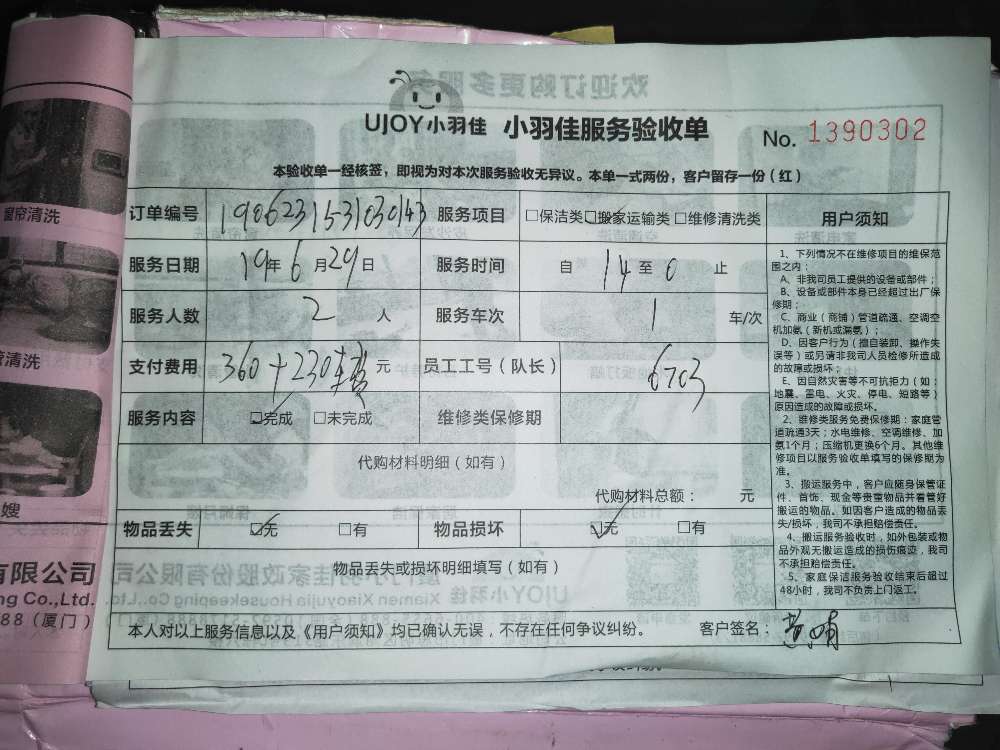 欢迎订购更多服务
UJOY小羽佳 小羽佳服务验收单 No. 1390302
本验收单一经核签，即视为对本次服务验收无异议。本单一式两份，客户留存一份（红）
订单编号 1906231531030143 服务项目 □保洁类☑搬家运输类□维修清洗类 用户须知
服务日期 19年6月29日 服务时间 自14至0止
服务人数 2人 服务车次 1车/次
支付费用 360+230 元 员工工号（队长） 6703
服务内容 ☑完成 □未完成 维修类保修期
代购材料明细（如有）
代购材料总额： 元
物品丢失 ☑无 □有 物品损坏 ☑无 □有
物品丢失或损坏明细填写（如有）
本人对以上服务信息以及《用户须知》均已确认无误，不存在任何争议纠纷。 客户签名：
1、下列情况不在维修项目的维保范
围之内：
A、非我司员工提供的设备或部件；
B、设备或部件本身已经超过出厂保
修期；
C、商业（商铺）管道疏通、空调空
机加氨（新机或漏氨）；
D、因客户行为（擅自装卸、操作失
误等）或另请非我司人员检修所造成
的故障或损坏；
E、因自然灾害等不可抗拒力（如：
地震、雷电、火灾、停电、短路等）
原因造成的故障或损坏。
2、维修类服务免费保修期：家庭管
道疏通3天；水电维修、空调维修、加
氨1个月；压缩机更换6个月。其他维
修项目以服务验收单填写的保修期为
准。
3、搬运服务中，客户应随身保管证
件、首饰、现金等贵重物品并看管好
搬运的物品。如因客户造成的物品丢
失/损坏，我司不承担赔偿责任。
4、搬运服务验收时，如外包装或物
品外观无搬运造成的损伤痕迹，我司
不承担赔偿责任。
5、家庭保洁服务验收结束后超过
48小时，我司不负责上门返工。
窗帘清洗
清洗
嫂
有限公司
ng Co.,Ltd.
888（厦门）